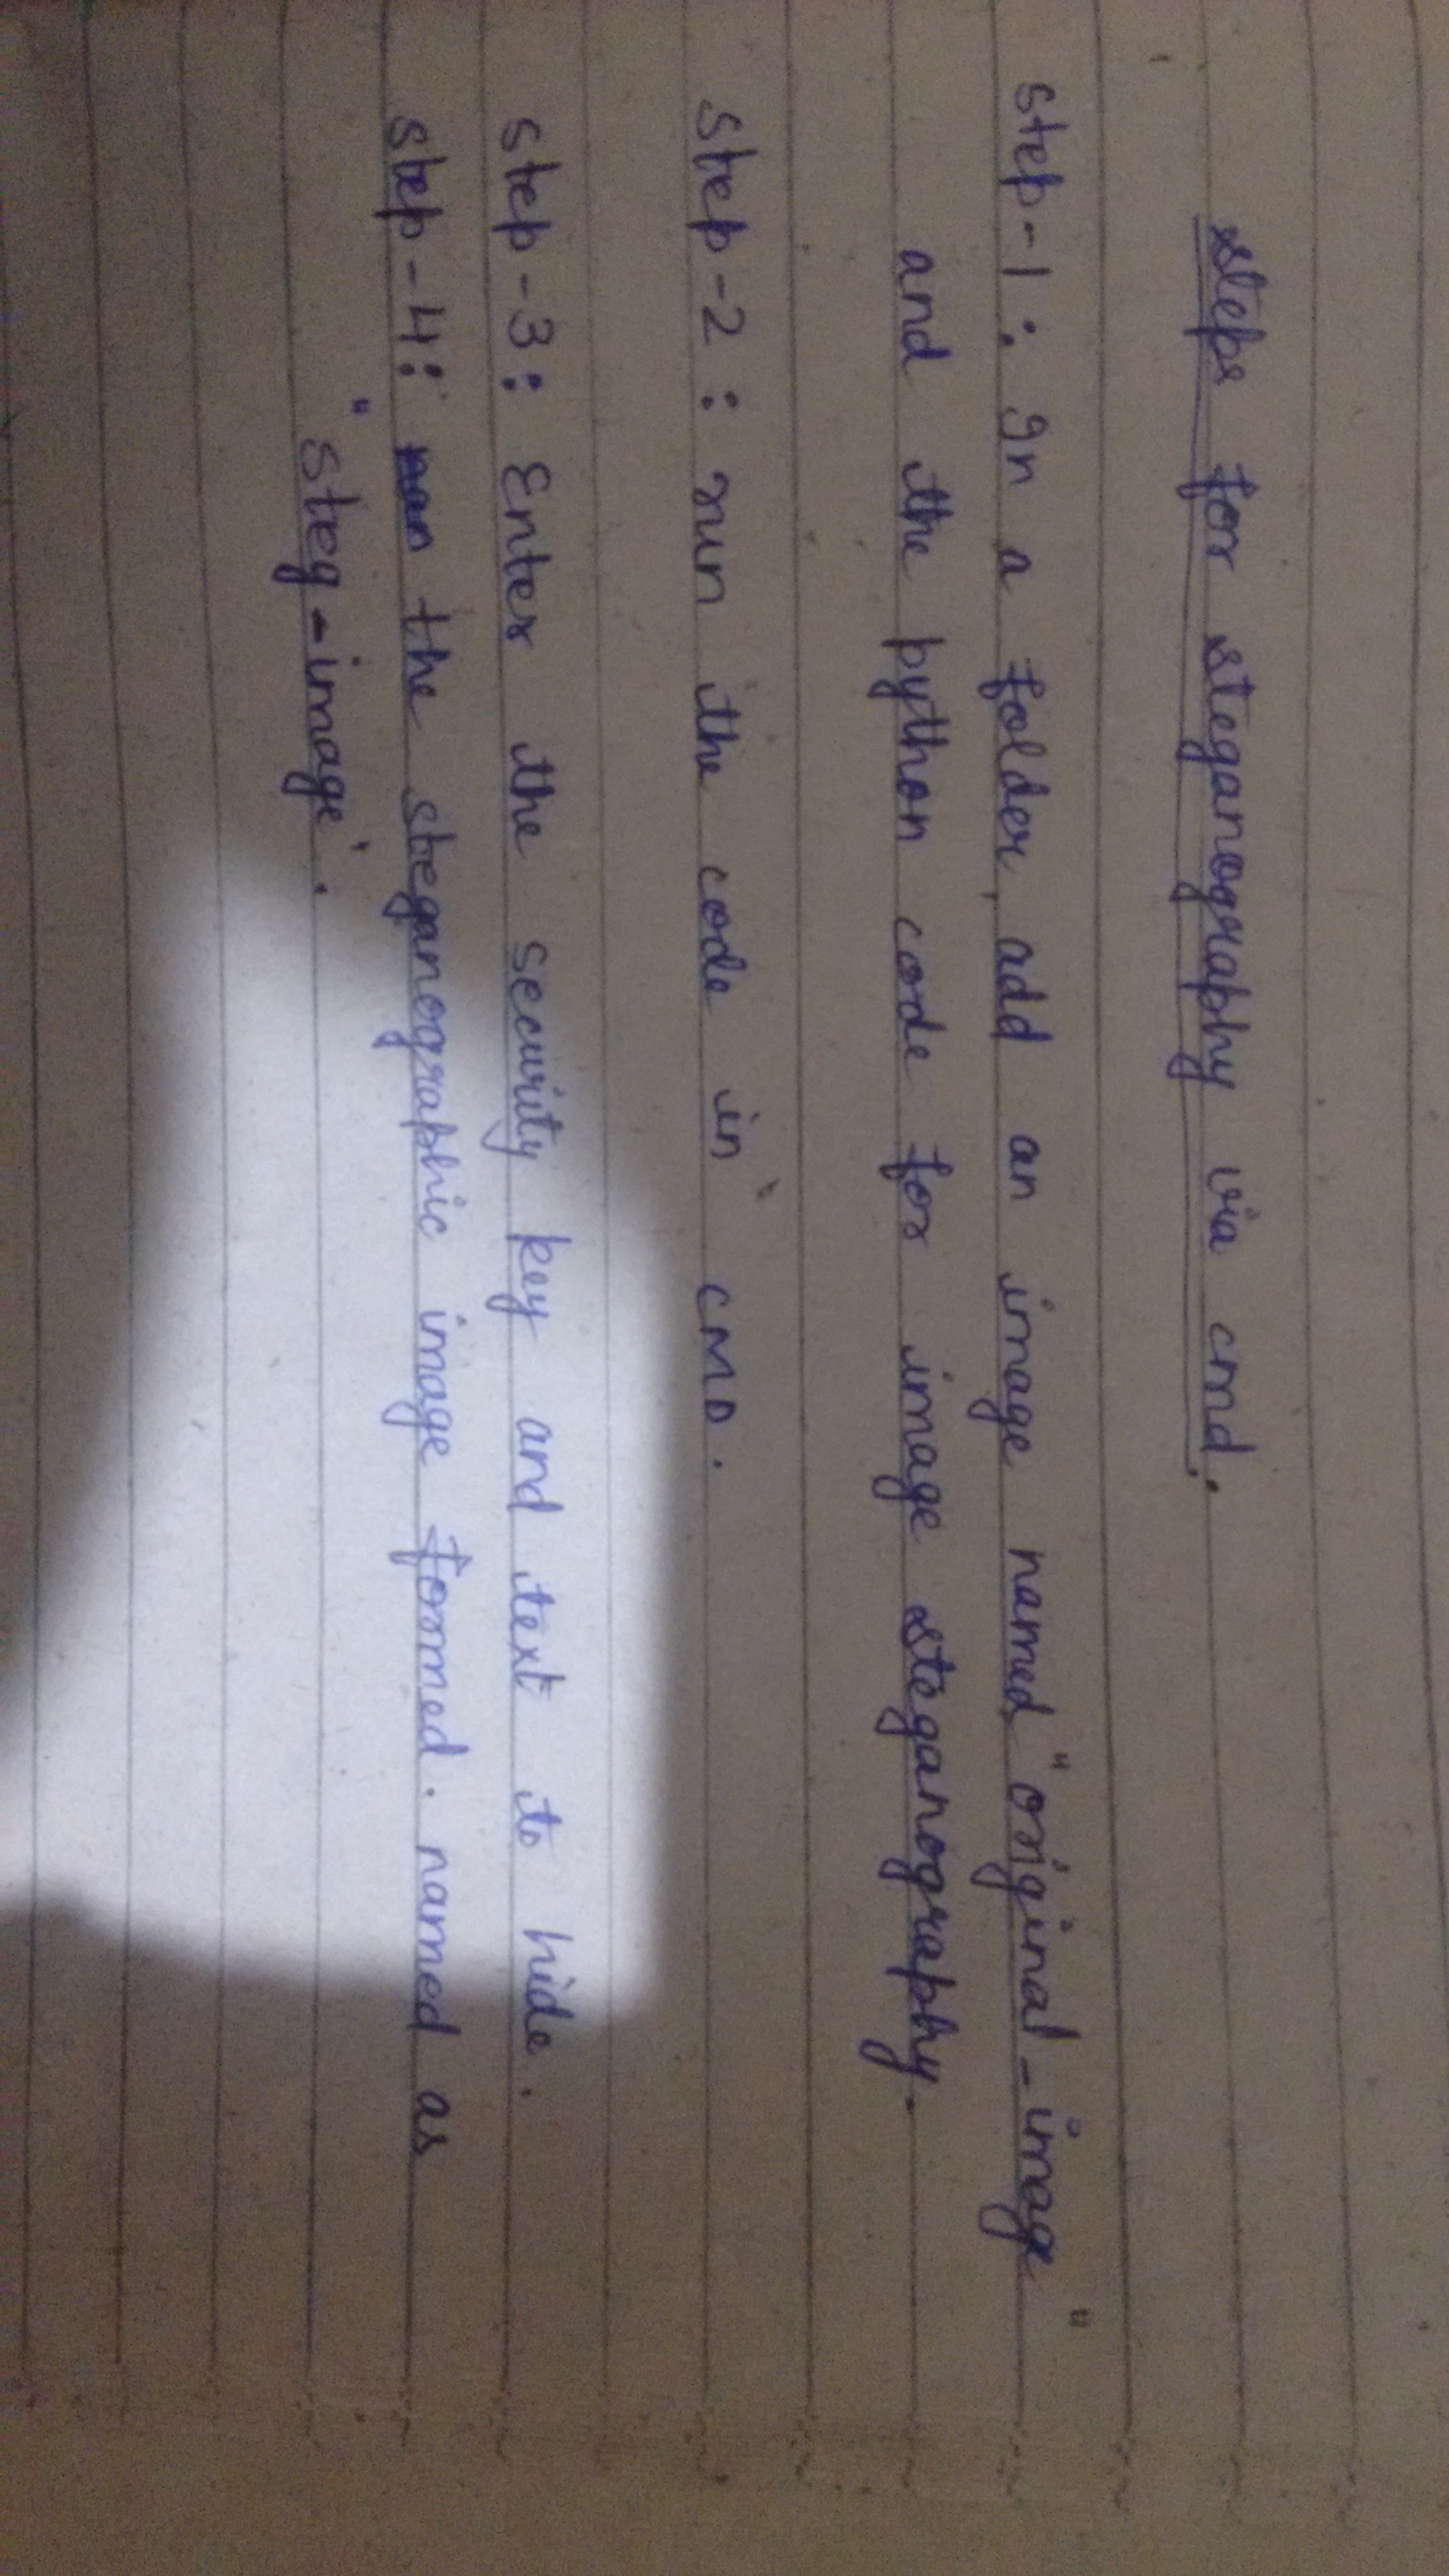 steps for steganography via cmd.
step-1: In a folder, add an image named "original-image"
and the python code for image steganography.
step-2: run the code in CMD.
step-3: Enter the security key and text to hide.
step-4: the steganographic image formed. named as
"steg-image".